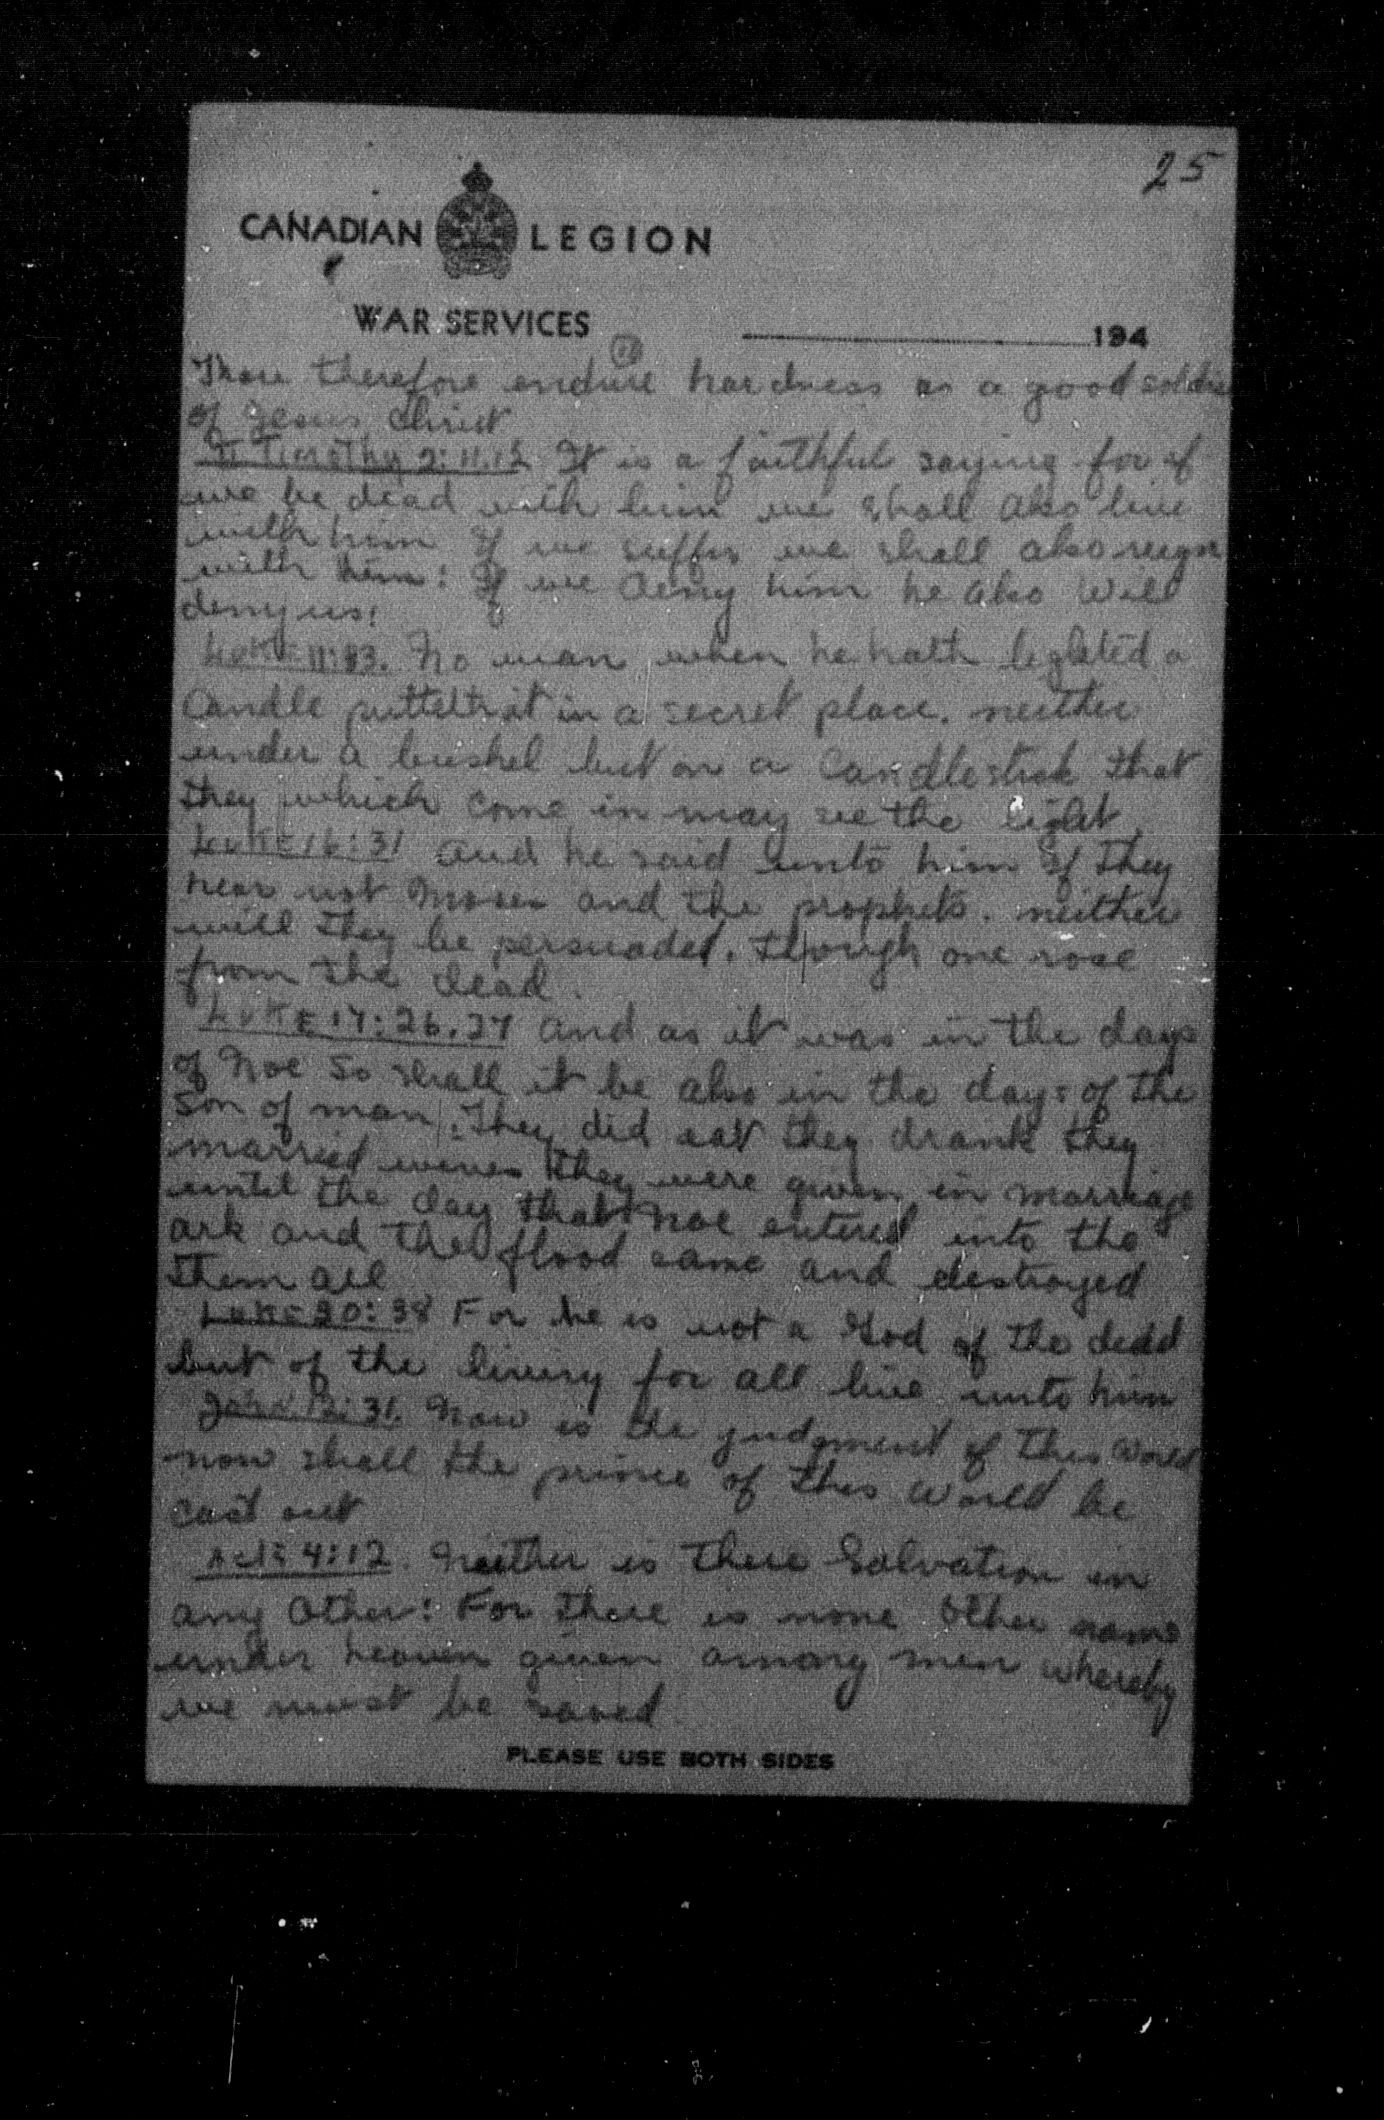 25
CANADIAN LEGION
WAR SERVICES 194
Thou therefore endure hardness as a good soldie
of Jesus Christ
II Timothy 2:11.12 It is a faithful saying for if
we be dead with him we shall also live
with him If we suffer we shall also reign
with him: If we deny him he also will
deny us:
LUKE 11:33. No man when he hath lighted a
Candle putteth it in a secret place. neither
under a bushel but on a Candlestick that
they which come in may see the light
LUKE 16:31 and he said unto him If they
hear not Moses and the prophets. neither
will they be persuaded. though one rose
from the dead.
LUKE 17:26.27 and as it was in the days
of Noe so shall it be also in the days of the
son of man. They did eat they drank they
married wives they were given in marriage
until the day that Noe entered into the
ark and the flood came and destroyed
them all
Luke 20:38 For he is not a God of the dead
but of the living for all live unto him
John 12:31. Now is the judgment of this World
now shall the prince of this World be
cast out
Acts 4:12. Neither is there Salvation in
any Other: For there is none other name
under heaven given among men whereby
we must be saved.
PLEASE USE BOTH SIDES